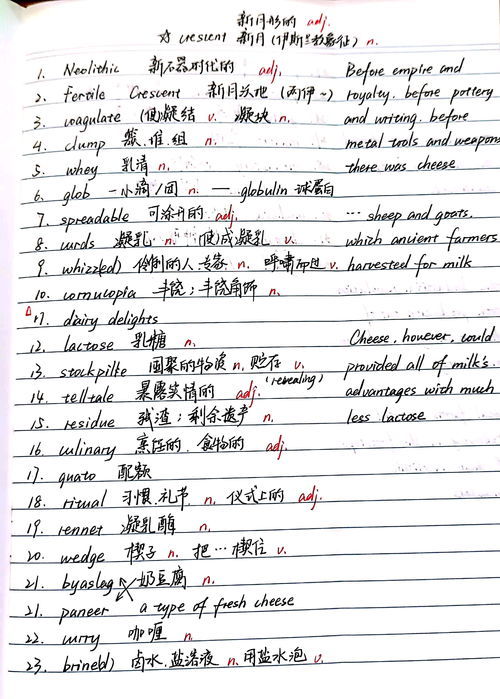 新月形的 adj.
☆ crescent 新月(伊斯兰教象征) n.
1. Neolithic 新石器时代的 adj. Before empire and
2. fertile Crescent 新月沃地 (两伊~) royalty, before pottery
3. coagulate (使)凝结 v. 凝块 n. and writing, before
4. clump 簇、堆、组 n. metal tools and weapons
5. whey 乳清 n. there was cheese
6. glob 一小滴/团 n. — globulin 球蛋白
7. spreadable 可涂开的 adj. ... sheep and goats,
8. curds 凝乳 n. (使)成凝乳 v. which ancient farmers
9. whizz(ed) 伶俐的人、专家 n. 呼啸而过 v. harvested for milk
10. cornucopia 丰饶; 丰饶角饰 n.
17. dairy delights
12. lactose 乳糖 n. Cheese, however, could
13. stockpilte 囤聚的物资 n. 贮存 v. provided all of milk's
14. telltale 暴露实情的 adj. (revealing) advantages with much
15. residue 残渣; 剩余遗产 n. less lactose
16. culinary 烹饪的、食物的 adj.
17. quato 配额
18. ritual 习惯、礼节 n. 仪式上的 adj.
19. rennet 凝乳酶 n.
20. wedge 楔子 n. 把…楔住 v.
21. byaslag 奶豆腐 n.
21. paneer a type of fresh cheese
22. curry 咖喱 n.
23. brine(d) 卤水、盐溶液 n. 用盐水泡 v.